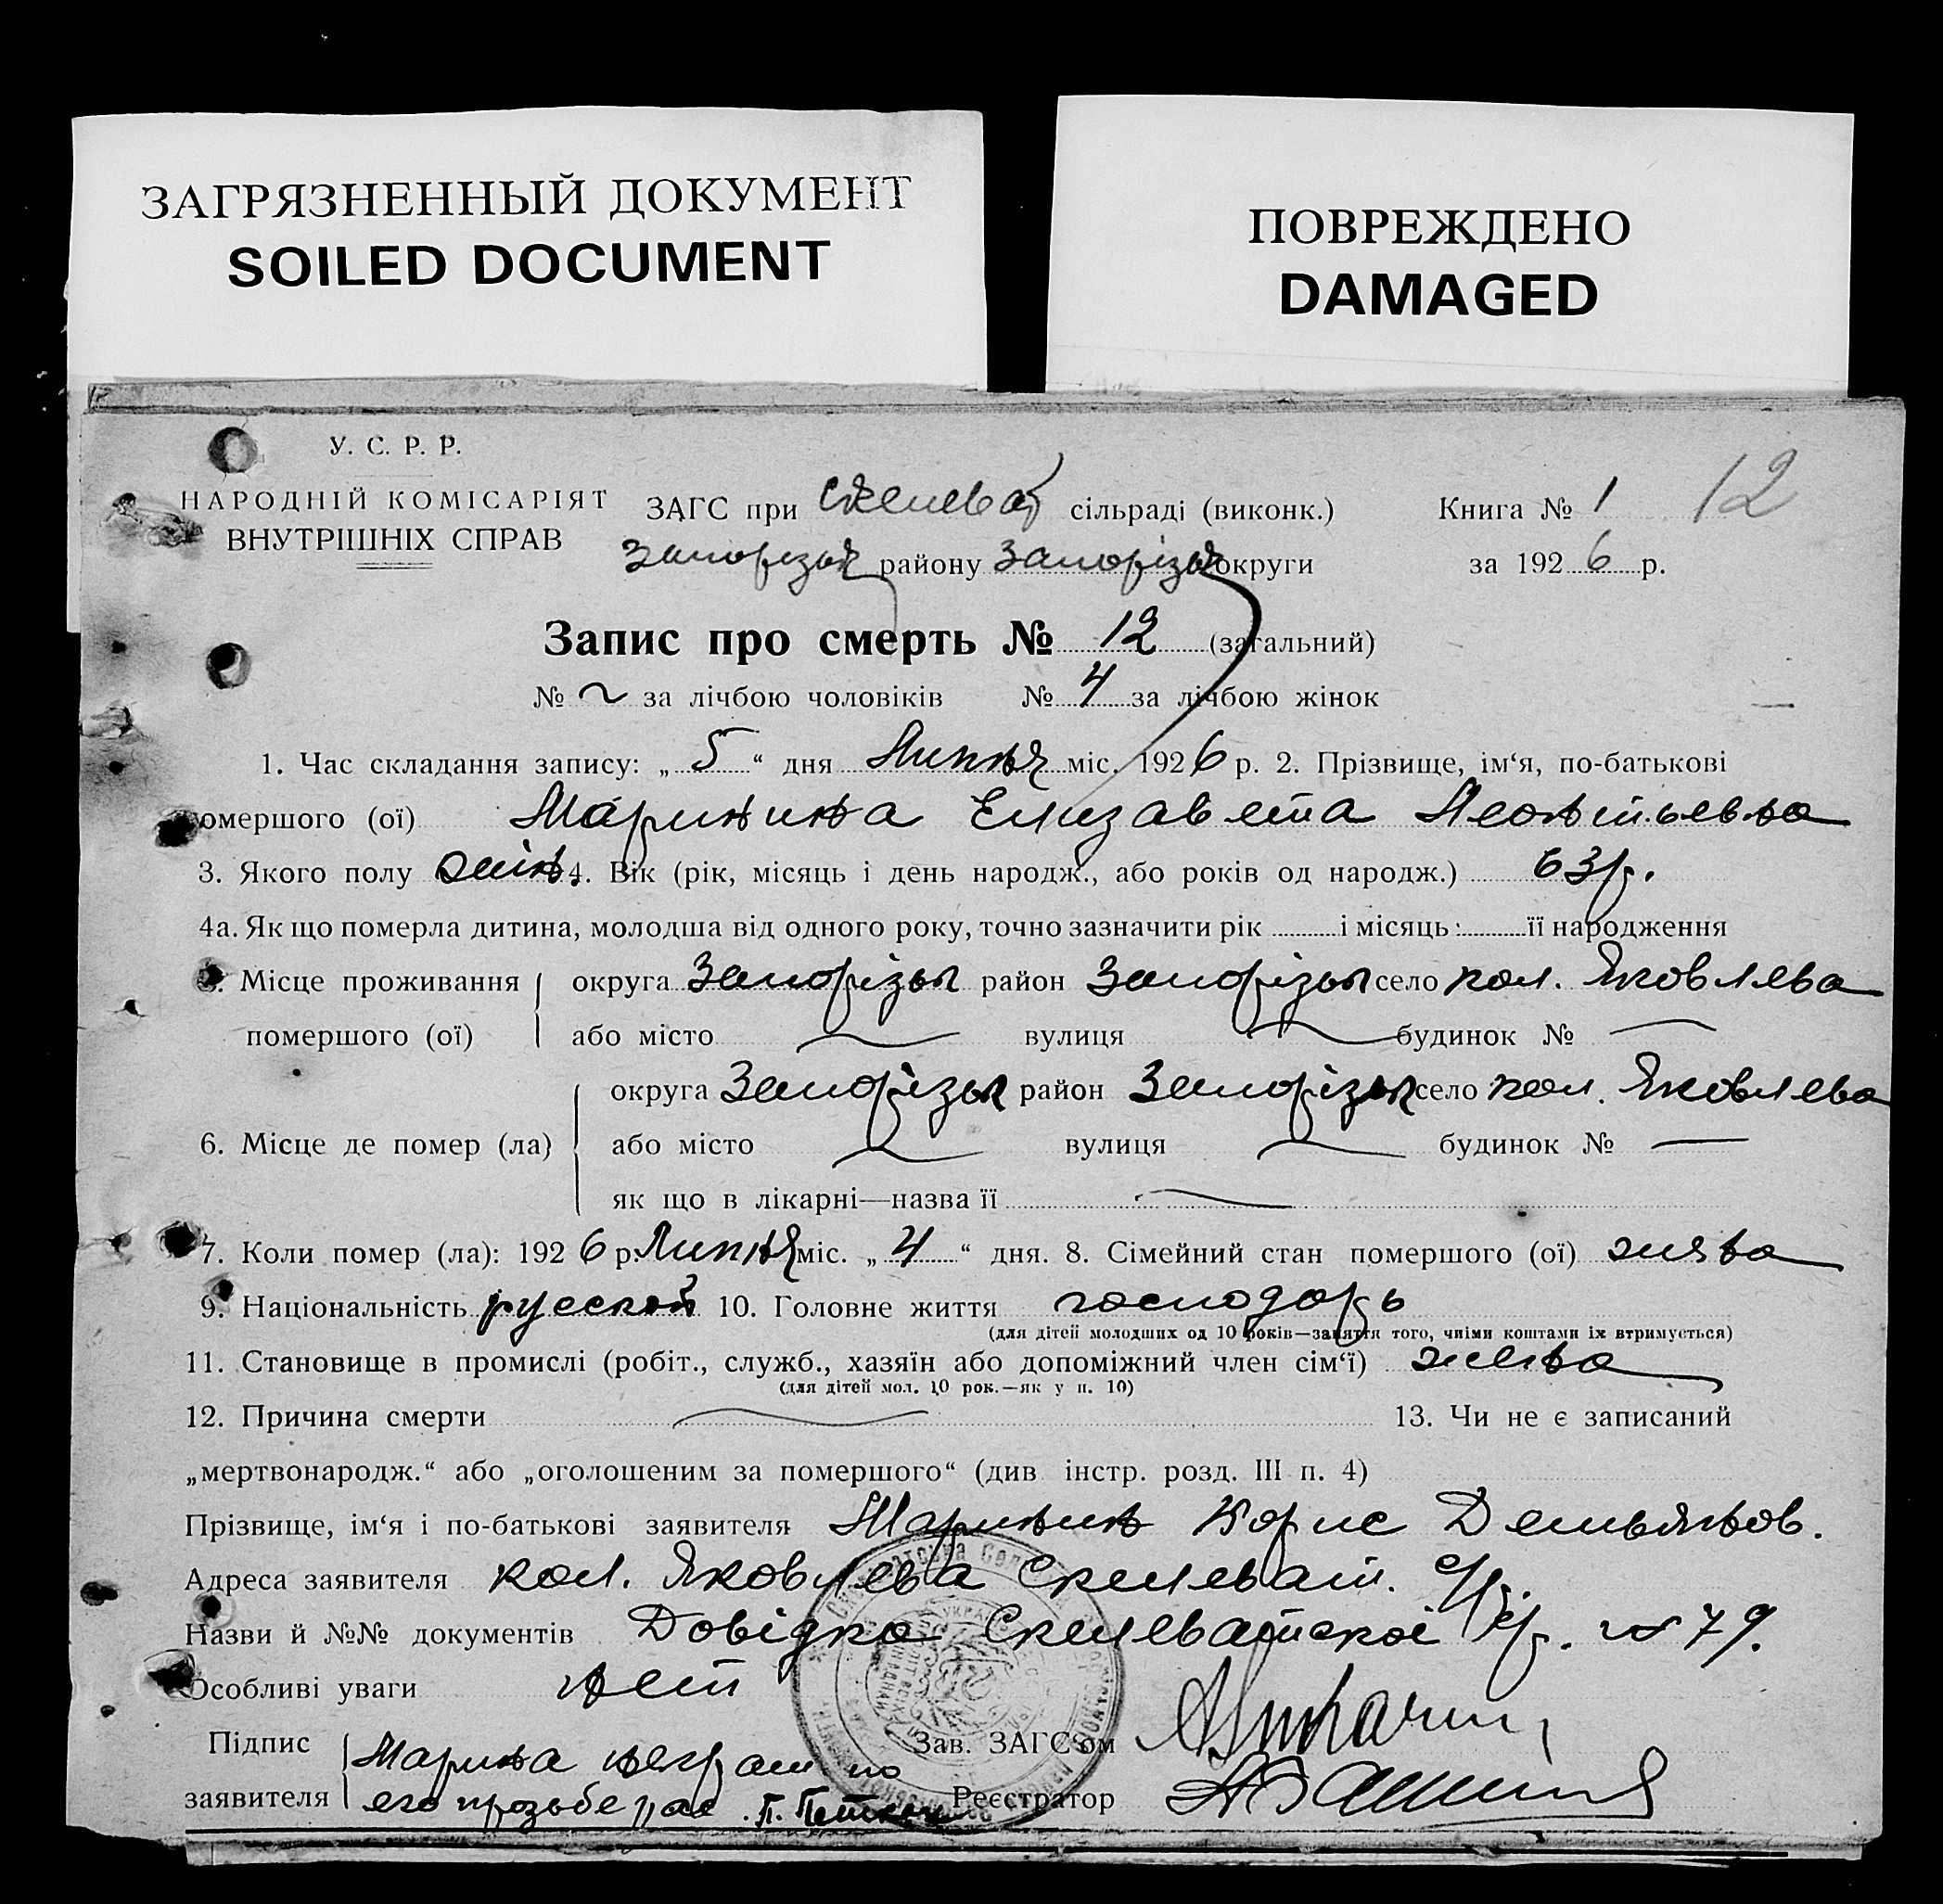 ЗАГРЯЗНЕННЫЙ ДОКУМЕНТ
SOILED DOCUMENT
ПОВРЕЖДЕНО
DAMAGED
У. С. Р. Р.
НАРОДНІЙ КОМІСАРІЯТ
ВНУТРІШНІХ СПРАВ
ЗАГС при Скелеват сільраді (виконк.)
Запорізьк району Запорізьк округи
Книга № 1 12
за 1926 р.
Запис про смерть № 12 (загальний)
№ за лічбою чоловіків № 4 за лічбою жінок
1. Час складання запису: „ 5 “ дня Липня міс. 1926 р. 2. Прізвище, ім‘я, по-батькові
омершого (ої) Маринина Елизавета Леонтьевна
3. Якого полу жін. 4. Вік (рік, місяць і день народж., або років од народж.) 63 р.
4а. Як що померла дитина, молодша від одного року, точно зазначити рік і місяць її народження
5. Місце проживання округа Запорізьк район Запорізьк село кол. Яковлева
помершого (ої) або місто вулиця будинок № —
округа Запорізьк район Запорізьк село кол. Яковлева
6. Місце де помер (ла) або місто вулиця будинок № —
як що в лікарні—назва її —
7. Коли помер (ла): 1926 р. Липня міс. „ 4 “ дня. 8. Сімейний стан помершого (ої)
9. Національність русской 10. Головне життя господарь
(для дітей молодших од 10 років—заняття того, чиїми коштами їх втримується)
11. Становище в промислі (робіт., служб., хазяїн або допоміжний член сім‘ї)
(для дітей мол. 10 рок.—як у п. 10)
12. Причина смерти — 13. Чи не є записаний
„мертвонародж.“ або „оголошеним за помершого“ (див інстр. розд. III п. 4)
Прізвище, ім‘я і по-батькові заявителя Маринин Борис Демьянов.
Адреса заявителя кол. Яковлева Скелеват. с/р.
Назви й №№ документів Довідка Скелеватской с/р. № 79.
Особливі уваги нет
Підпис Марина неграм по Зав. ЗАГС'ом
заявителя его прозьбе рас. П. Реєстратор